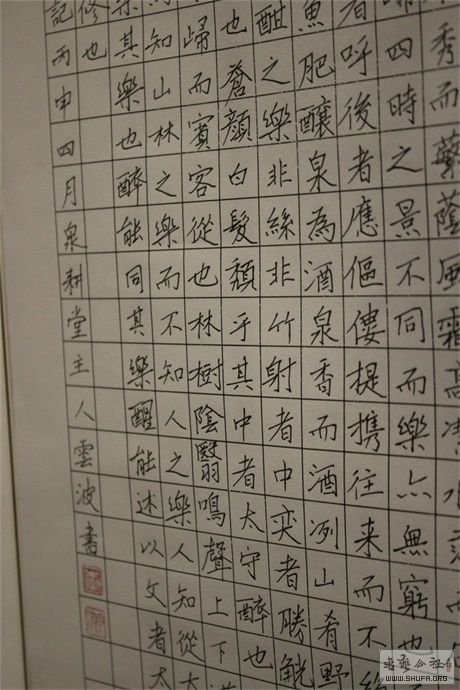 秀而繁蔭風霜高潔水
四時之景不同而樂亦無窮也
者呼後者應傴僂提携往来而不
魚肥釀泉為酒泉香而酒洌山肴野
酣之樂非絲非竹射者中奕者勝觥
也蒼顏白髮頹乎其中者太守醉也
歸而賓客從也林樹陰翳鳴聲上下
知山林之樂而不知人之樂人知從太
樂其樂也醉能同其樂醒能述以文者太
修也
記丙申四月泉耕堂主人雲波書
書藝公社
WWW.SHUFA.ORG